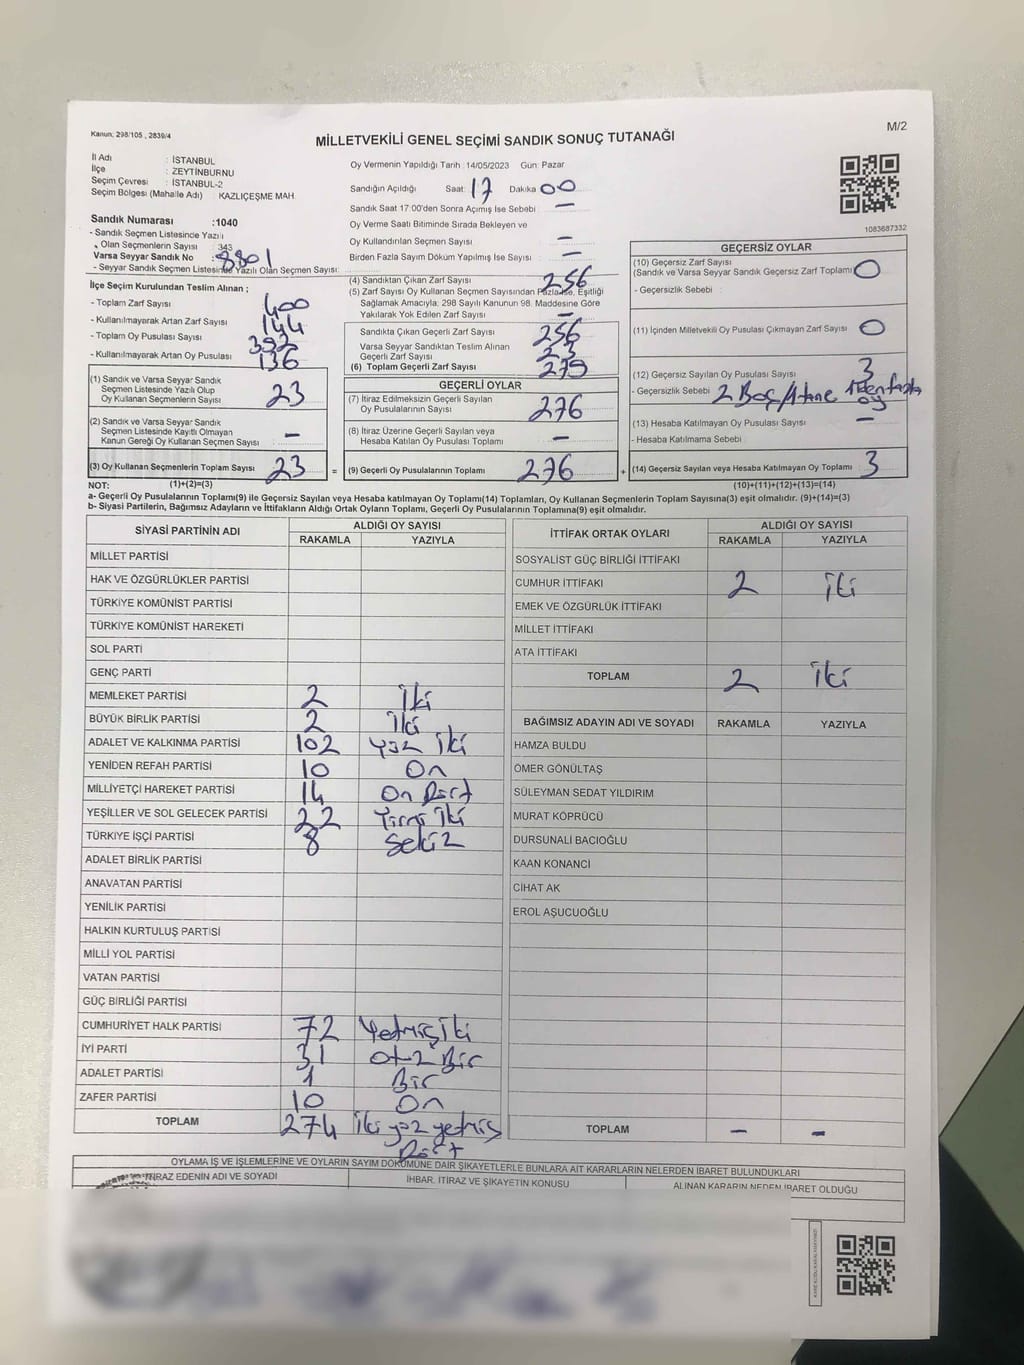 Kanun; 298/105 , 2839/4
M/2
MİLLETVEKİLİ GENEL SEÇİMİ SANDIK SONUÇ TUTANAĞI
İl Adı : İSTANBUL
İlçe : ZEYTİNBURNU
Seçim Çevresi : İSTANBUL-2
Seçim Bölgesi (Mahalle Adı) KAZLIÇEŞME MAH.
Sandık Numarası :1040
- Sandık Seçmen Listesinde Yazılı
Olan Seçmenlerin Sayısı : 343
Varsa Seyyar Sandık No : 8801
- Seyyar Sandık Seçmen Listesinde Yazılı Olan Seçmen Sayısı:
İlçe Seçim Kurulundan Teslim Alınan ;
- Toplam Zarf Sayısı 400
- Kullanılmayarak Artan Zarf Sayısı 144
- Toplam Oy Pusulası Sayısı 392
- Kullanılmayarak Artan Oy Pusulası 136
(1) Sandık ve Varsa Seyyar Sandık
Seçmen Listesinde Yazılı Olup
Oy Kullanan Seçmenlerin Sayısı 23
(2) Sandık ve Varsa Seyyar Sandık
Seçmen Listesinde Kayıtlı Olmayan
Kanun Gereği Oy Kullanan Seçmen Sayısı : –
(3) Oy Kullanan Seçmenlerin Toplam Sayısı 23 =
Oy Vermenin Yapıldığı Tarih : 14/05/2023 Gün: Pazar
Sandığın Açıldığı Saat: 17 Dakika 00
Sandık Saat 17:00'den Sonra Açımış İse Sebebi : –
Oy Verme Saati Bitiminde Sırada Bekleyen ve
Oy Kullandırılan Seçmen Sayısı –
Birden Fazla Sayım Döküm Yapılmış İse Sayısı : –
(4) Sandıktan Çıkan Zarf Sayısı 256
(5) Zarf Sayısı Oy Kullanan Seçmen Sayısından Fazla İse, Eşitliği
Sağlamak Amacıyla, 298 Sayılı Kanunun 98. Maddesine Göre
Yakılarak Yok Edilen Zarf Sayısı –
Sandıkta Çıkan Geçerli Zarf Sayısı 256
Varsa Seyyar Sandıktan Teslim Alınan
Geçerli Zarf Sayısı 23
(6) Toplam Geçerli Zarf Sayısı 279
GEÇERLİ OYLAR
(7) İtiraz Edilmeksizin Geçerli Sayılan
Oy Pusulalarının Sayısı 276
(8) İtiraz Üzerine Geçerli Sayılan veya
Hesaba Katılan Oy Pusulası Toplamı –
(9) Geçerli Oy Pusulalarının Toplamı 276 +
1083687332
GEÇERSİZ OYLAR
(10) Geçersiz Zarf Sayısı
(Sandık ve Varsa Seyyar Sandık Geçersiz Zarf Toplamı) 0
- Geçersizlik Sebebi :
(11) İçinden Milletvekili Oy Pusulası Çıkmayan Zarf Sayısı : 0
(12) Geçersiz Sayılan Oy Pusulası Sayısı : 3
- Geçersizlik Sebebi : 2 Boş/1tane 1den fazla
oy
(13) Hesaba Katılmayan Oy Pusulası Sayısı : –
- Hesaba Katılmama Sebebi :
(14) Geçersiz Sayılan veya Hesaba Katılmayan Oy Toplamı : 3
NOT: (1)+(2)=(3) (10)+(11)+(12)+(13)=(14)
a- Geçerli Oy Pusulalarının Toplamı(9) ile Geçersiz Sayılan veya Hesaba katılmayan Oy Toplamı(14) Toplamları, Oy Kullanan Seçmenlerin Toplam Sayısına(3) eşit olmalıdır. (9)+(14)=(3)
b- Siyasi Partilerin, Bağımsız Adayların ve İttifakların Aldığı Ortak Oyların Toplamı, Geçerli Oy Pusulalarının Toplamına(9) eşit olmalıdır.
SİYASİ PARTİNİN ADI ALDIĞI OY SAYISI
RAKAMLA YAZIYLA
MİLLET PARTİSİ
HAK VE ÖZGÜRLÜKLER PARTİSİ
TÜRKİYE KOMÜNİST PARTİSİ
TÜRKİYE KOMÜNİST HAREKETİ
SOL PARTİ
GENÇ PARTİ
MEMLEKET PARTİSİ 2 iki
BÜYÜK BİRLİK PARTİSİ 2 iki
ADALET VE KALKINMA PARTİSİ 102 yüz iki
YENİDEN REFAH PARTİSİ 10 On
MİLLİYETÇİ HAREKET PARTİSİ 14 On Dört
YEŞİLLER VE SOL GELECEK PARTİSİ 22 Yirmi iki
TÜRKİYE İŞÇİ PARTİSİ 8 Sekiz
ADALET BİRLİK PARTİSİ
ANAVATAN PARTİSİ
YENİLİK PARTİSİ
HALKIN KURTULUŞ PARTİSİ
MİLLİ YOL PARTİSİ
VATAN PARTİSİ
GÜÇ BİRLİĞİ PARTİSİ
CUMHURİYET HALK PARTİSİ 72 Yetmiş iki
İYİ PARTİ 31 otuz Bir
ADALET PARTİSİ 1 Bir
ZAFER PARTİSİ 10 On
TOPLAM 274 iki yüz yetmiş
Dört
İTTİFAK ORTAK OYLARI ALDIĞI OY SAYISI
RAKAMLA YAZIYLA
SOSYALİST GÜÇ BİRLİĞİ İTTİFAKI
CUMHUR İTTİFAKI 2 iki
EMEK VE ÖZGÜRLÜK İTTİFAKI
MİLLET İTTİFAKI
ATA İTTİFAKI
TOPLAM 2 iki
BAĞIMSIZ ADAYIN ADI VE SOYADI RAKAMLA YAZIYLA
HAMZA BULDU
ÖMER GÖNÜLTAŞ
SÜLEYMAN SEDAT YILDIRIM
MURAT KÖPRÜCÜ
DURSUNALİ BACIOĞLU
KAAN KONANCİ
CİHAT AK
EROL AŞUCUOĞLU
TOPLAM – –
OYLAMA İŞ VE İŞLEMLERİNE VE OYLARIN SAYIM DÖKÜMÜNE DAİR ŞİKAYETLERLE BUNLARA AİT KARARLARIN NELERDEN İBARET BULUNDUKLARI
İTİRAZ EDENİN ADI VE SOYADI İHBAR, İTİRAZ VE ŞİKAYETİN KONUSU ALINAN KARARIN NEDEN İBARET OLDUĞU